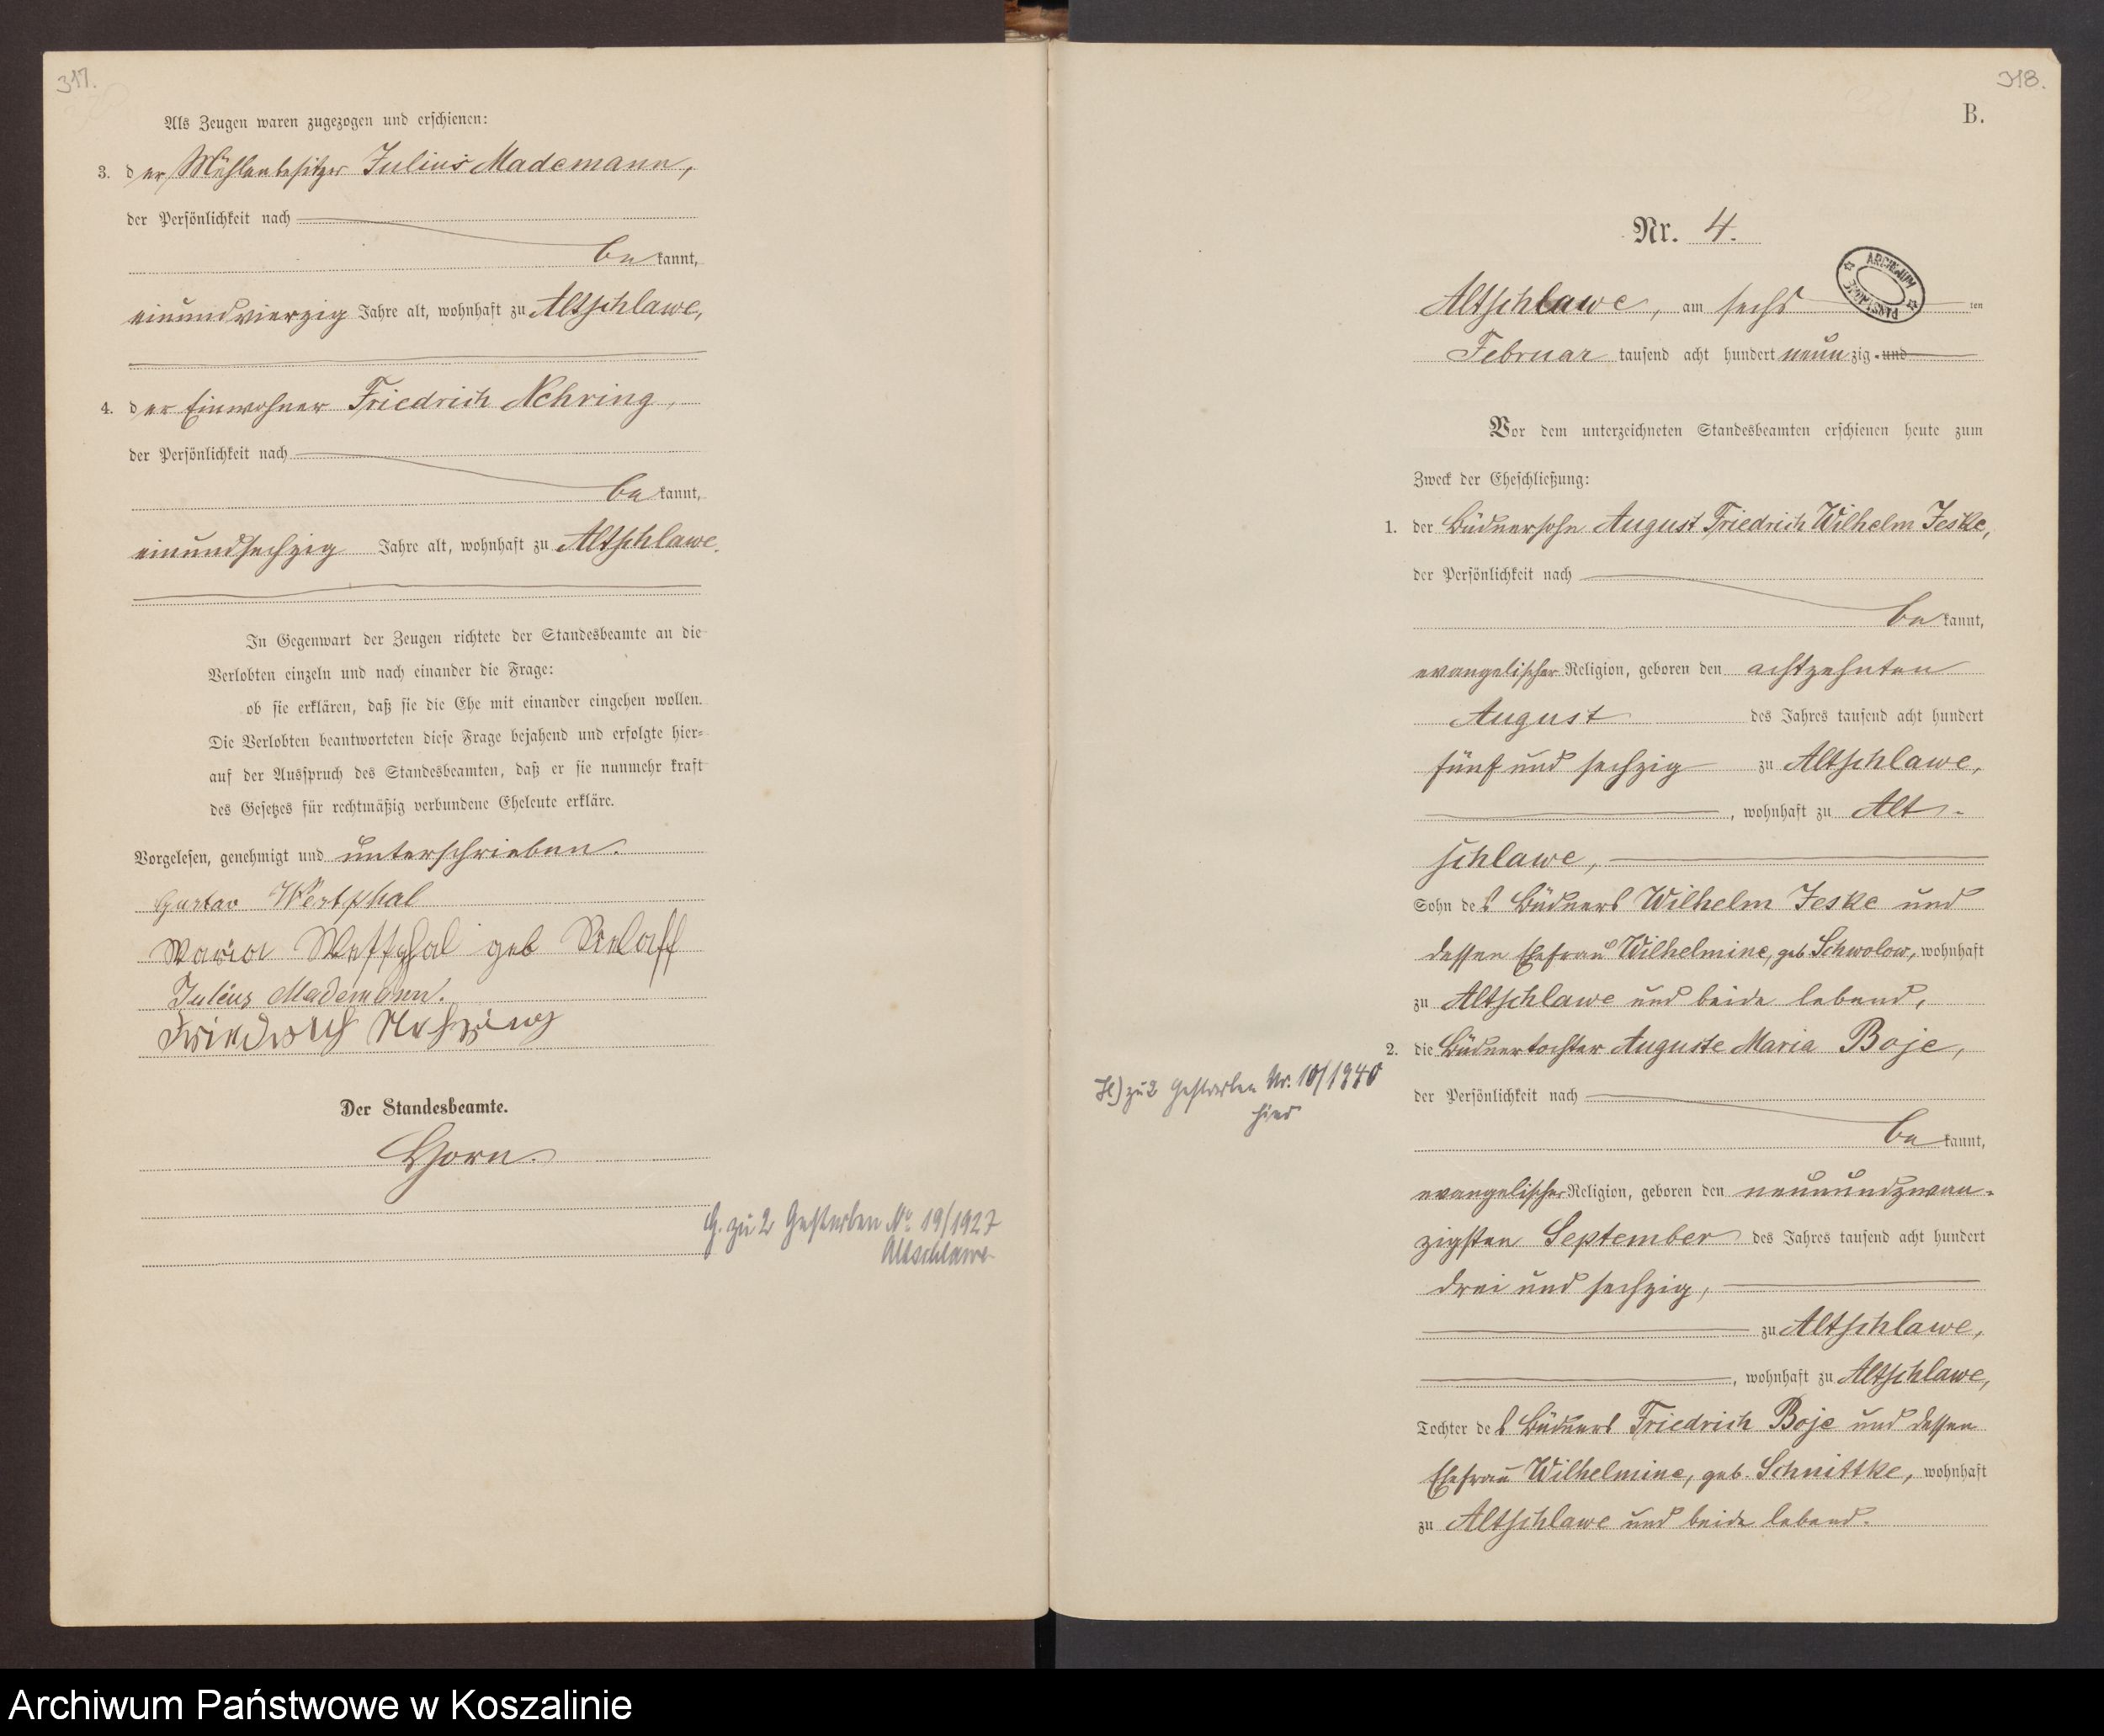 317.
Als Zeugen waren zugezogen und erschienen:
3. der Mühlenbesitzer Julius Mademann,
der Persönlichkeit nach
bekannt,
einundvierzig Jahre alt, wohnhaft zu Altschlawe,
4. der Einwohner Friedrich Nehring,
der Persönlichkeit nach
bekannt,
einundsechzig Jahre alt, wohnhaft zu Altschlawe.
In Gegenwart der Zeugen richtete der Standesbeamte an die
Verlobten einzeln und nach einander die Frage:
ob sie erklären, daß sie die Ehe mit einander eingehen wollen.
Die Verlobten beantworteten diese Frage bejahend und erfolgte hier-
auf der Ausspruch des Standesbeamten, daß er sie nunmehr kraft
des Gesetzes für rechtmäßig verbundene Eheleute erkläre.
Vorgelesen, genehmigt und unterschrieben.
Gustav Westphal
Maria Westphal geb
Julius Mademann.
Friedrich Nehring
Der Standesbeamte.
Horn.
G. zu 2 Gestorben No 19/1927
Altschlawe
318.
B.
Nr. 4.
ARCHIWUM PAŃSTWOWE
Altschlawe, am sechsten
Februar tausend acht hundert neunzig und
Vor dem unterzeichneten Standesbeamten erschienen heute zum
Zweck der Eheschließung:
1. der Büdnersohn August Friedrich Wilhelm Jeske,
der Persönlichkeit nach
bekannt,
evangelischer Religion, geboren den achtzehnten
August des Jahres tausend acht hundert
fünf und sechzig zu Altschlawe,
, wohnhaft zu Alt-
schlawe,
Sohn des Büdners Wilhelm Jeske und
dessen Ehefrau Wilhelmine, geb. Schwolow, wohnhaft
zu Altschlawe und beide lebend,
2. die Büdnertochter Auguste Maria Boje,
der Persönlichkeit nach
H) zu 2 Gestorben Nr. 10/1940
hier
bekannt,
evangelischer Religion, geboren den neunundzwan-
zigsten September des Jahres tausend acht hundert
drei und sechzig,
zu Altschlawe,
, wohnhaft zu Altschlawe,
Tochter des Büdners Friedrich Boje und dessen
Ehefrau Wilhelmine, geb. Schnittke, wohnhaft
zu Altschlawe und beide lebend.
Archiwum Państwowe w Koszalinie